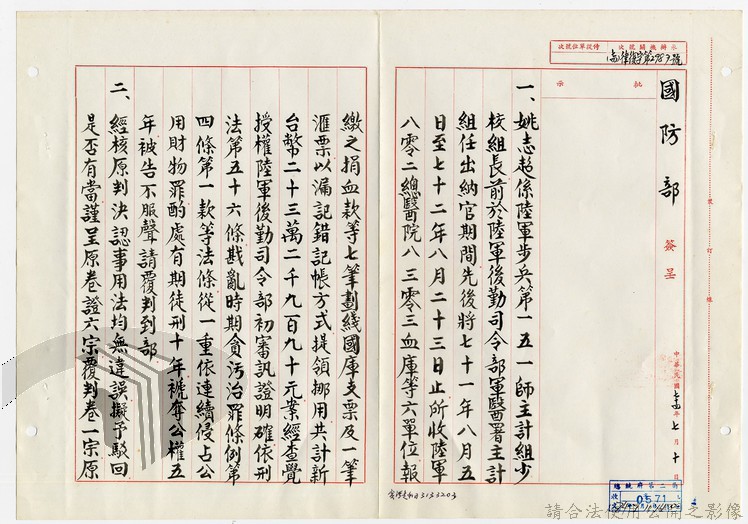 國防部 簽呈
中華民國 年七月十日
批示
一、姚志超係陸軍步兵第一五一師主計組少
校組長前於陸軍後勤司令部軍醫署主計
組任出納官期間先後將七十一年八月五
日至七十二年八月二十三日止所收陸軍
八零二總醫院八三零三血庫等六單位報
繳之捐血款等七筆劃綫國庫支票及一筆
滙票以漏記錯記帳方式提領挪用共計新
台幣二十三萬二千九百九十元案經查覺
授權陸軍後勤司令部初審訊證明確依刑
法第五十六條戡亂時期貪污治罪條例第
四條第一款等法條從一重依連續侵占公
用財物罪酌處有期徒刑十年褫奪公權五
年被告不服聲請覆判到部
二、經核原判決認事用法均無違誤擬予駁回
是否有當謹呈原卷證六宗覆判卷一宗原
總統府第二局
0571
請合法使用公開之影像